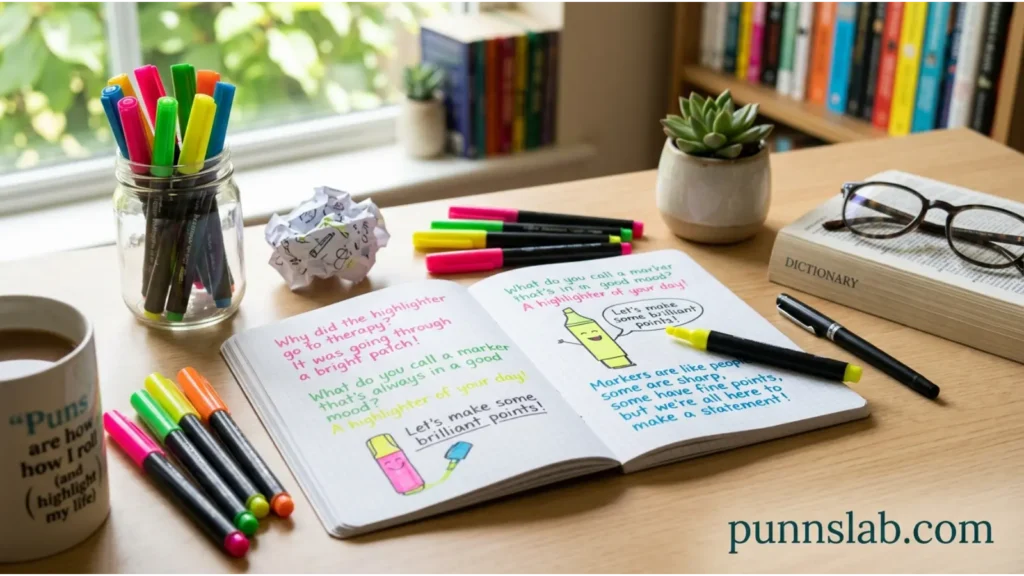 "Puns
are how
how I roll
(and
(highlight
my life)
Why did the highlighter
go to therapy?
It was going through
a bright patch!
What do you call a marker
that's always in a good
mood?
A highlighter of your day!
Let's make some
brilliant points!
What do you call a marker
that's in good mood?
A highlighter of your day!
Let's make
some brilliant
points!
Markers are like
some are sharp,
some have fine points,
but we're all here to
make a statement!
DICTIONARY
punnslab.com